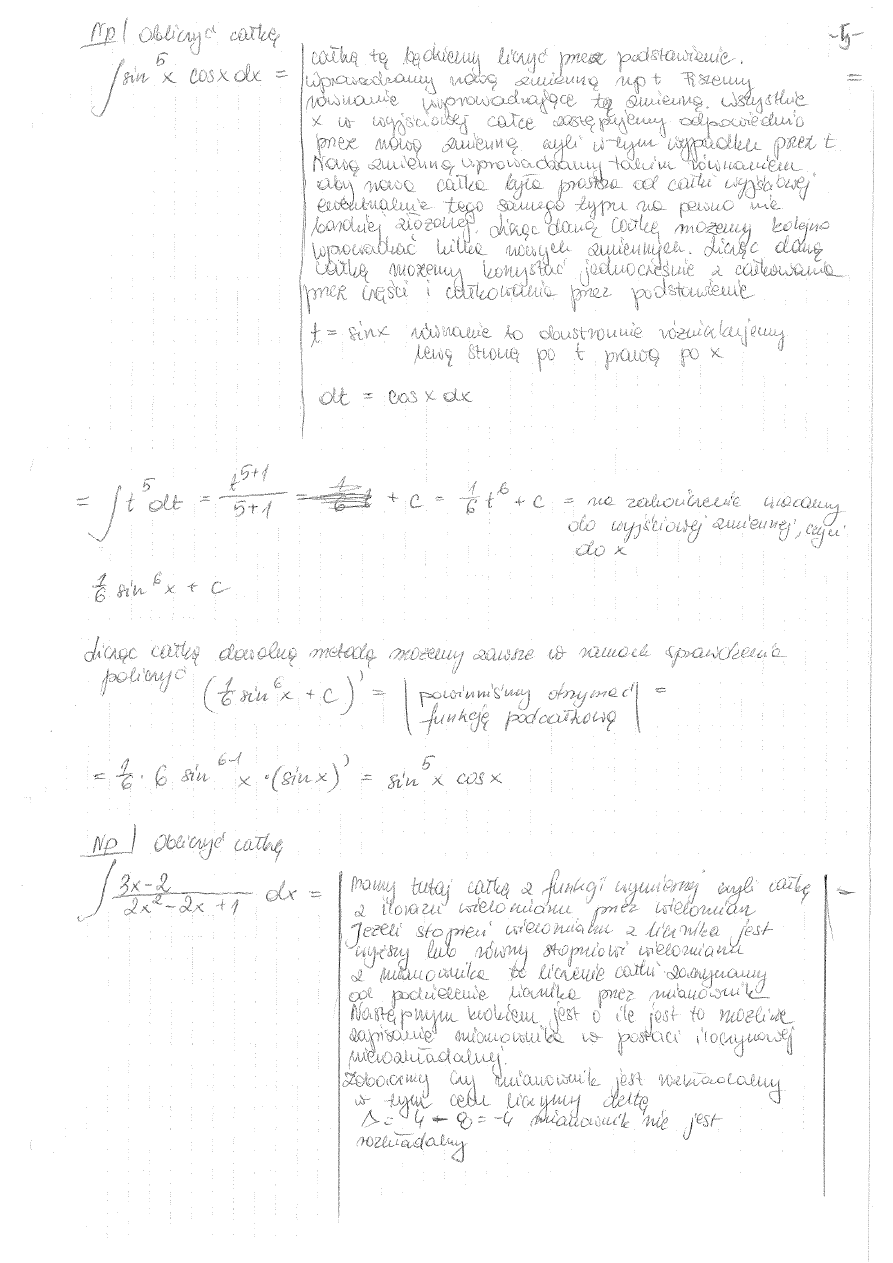 -5-
Np| Obliczyć całkę
∫ sin⁵x cosx dx = | całkę tę będziemy liczyć przez podstawienie.
wprowadzamy nową zmienną np t Piszemy =
równanie wprowadzające tę zmienną. Wszystkie
x w wyjściowej całce zastępujemy odpowiednio
przez nową zmienną czyli w tym wypadku przez t
Nową zmienną wprowadzamy takim równaniem
aby nowa całka była prostsza od całki wyjściowej
ewentualnie tego samego typu na pewno nie
bardziej złożonej. Licząc daną całkę możemy kolejno
wprowadzać kilka nowych zmiennych. Licząc daną
całkę możemy korzystać jednocześnie z całkowania
przez części i całkowania przez podstawienie
t = sinx równanie to obustronnie różniczkujemy
lewą stronę po t prawą po x
dt = cosx dx
= ∫ t⁵ dt = t⁵⁺¹/(5+1) + c = 1/6 t⁶ + c = na zakończenie wracamy
do wyjściowej zmiennej, czyli
do x
1/6 sin⁶x + c
Licząc całkę dowolną metodą możemy zawsze w ramach sprawdzenia
policzyć (1/6 sin⁶x + c)' = | powinniśmy otrzymać | =
funkcję podcałkową
= 1/6 · 6 sin⁶⁻¹x · (sinx)' = sin⁵x cosx
Np| Obliczyć całkę
∫ (3x-2)/(2x²-2x+1) dx = | Mamy tutaj całkę z funkcji wymiernej czyli całkę | =
z ilorazu wielomianu przez wielomian
Jeżeli stopień wielomianu z licznika jest
wyższy lub równy stopniowi wielomianu
z mianownika to liczenie całki zaczynamy
od podzielenia licznika przez mianownik
Następnym krokiem jest o ile jest to możliwe
zapisanie mianownika w postaci iloczynowej
nierozkładalnej.
Zobaczmy czy mianownik jest rozkładalny
w tym celu liczymy deltę
Δ = 4 - 8 = -4 mianownik nie jest
rozkładalny